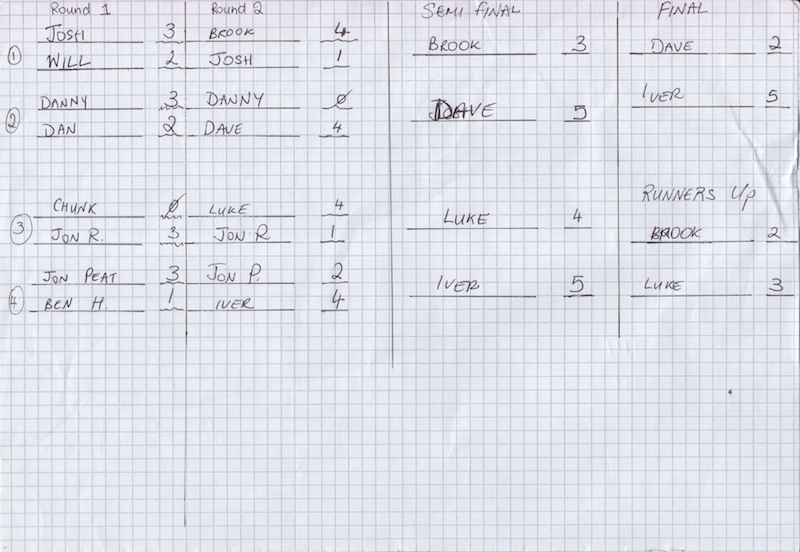 Round 1 Round 2 SEMI FINAL FINAL
JOSH 3 BROOK 4 BROOK 3 DAVE 2
① WILL 2 JOSH 1
DANNY 3 DANNY 0 DAVE 5 IVER 5
② DAN 2 DAVE 4
RUNNERS UP
CHUNK 0 LUKE 4 LUKE 4 BROOK 2
③ JON R. 3 JON R 1
JON PEAT 3 JON P. 2 IVER 5 LUKE 3
④ BEN H. 1 IVER 4